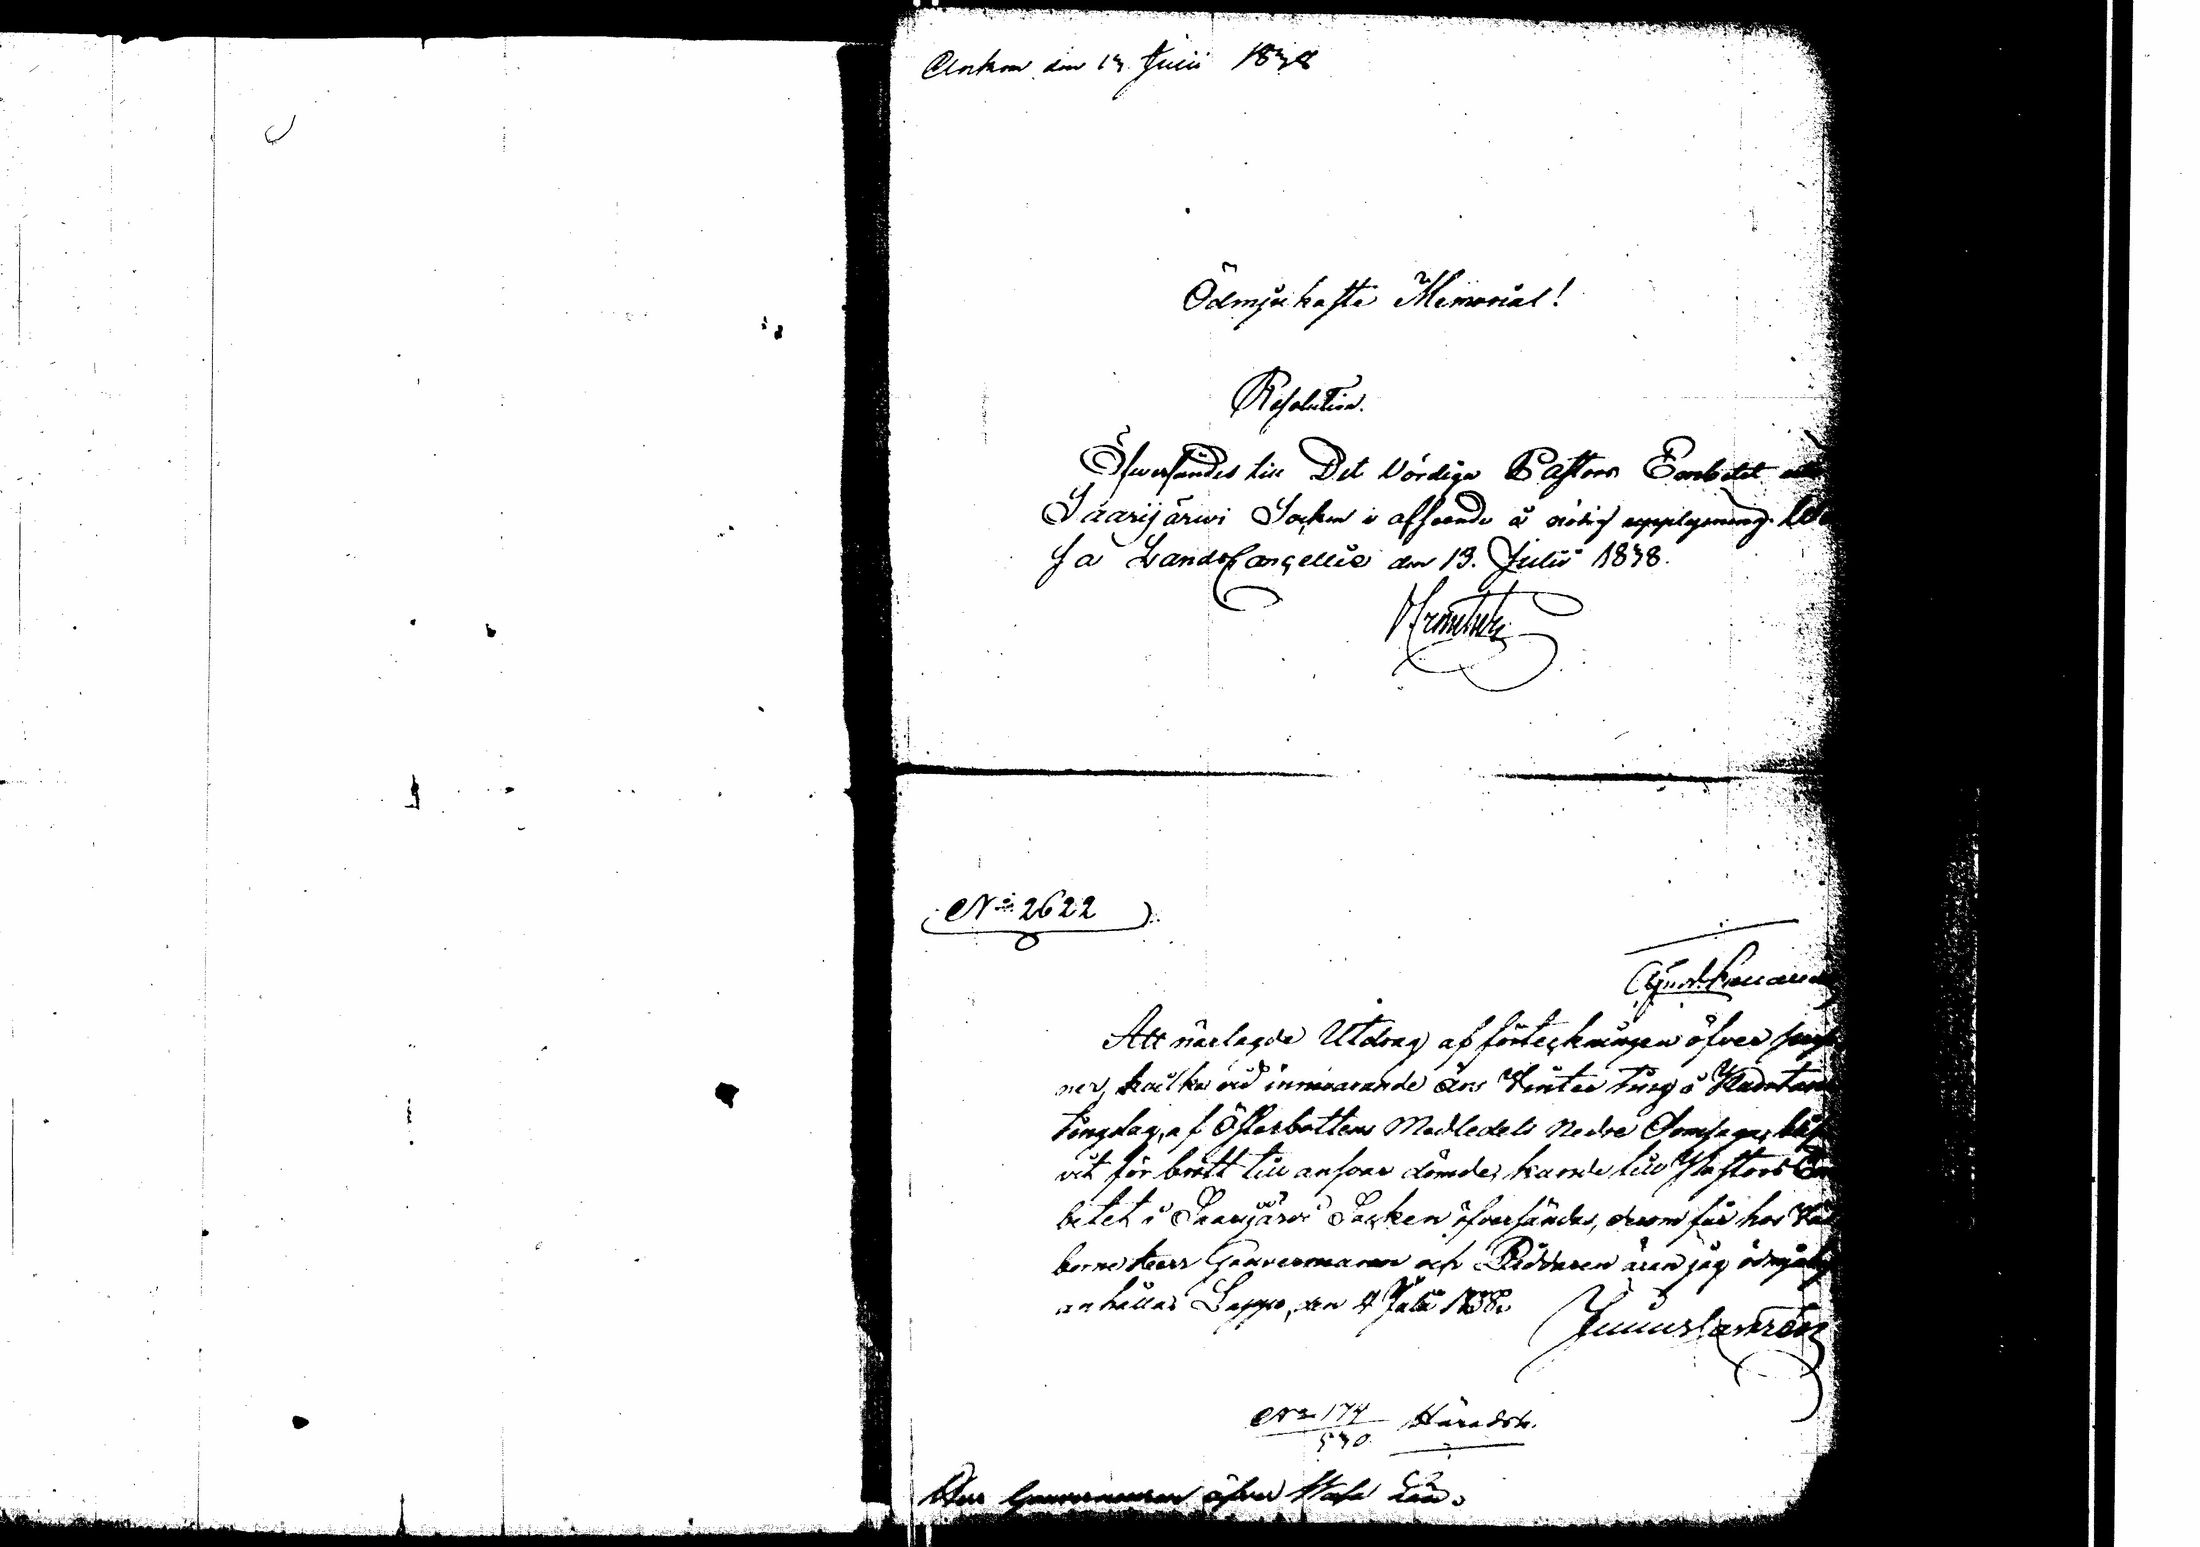 den 13 Julii 1838
Ödmjukaste Memorial!
Resolution.
Öfversändes till Det Vördiga Pastors Embetet
Saarijärwi Socken i afseende å nödig upplysning.
sa LandsCancellie den 13. Julii 1838.
No 2622
Att närlagde Utdrag af förteckningen öfver
ner, hvilka vid innevarande års Vinter ting i
tingslag, af Österbottens Medledels Nedre Domsaga,
vit för brott till ansvar dömde, kunde till Pastors
betet i Saarijärvi Socken öfversändas, derom får hos
borne Herr Gouverneuren och Riddaren äran jag
anhålla; Lappo, den 4 Julii 1838.
No 174 Häradsh.
570
Herr Gouverneuren öfver Wasa Län.